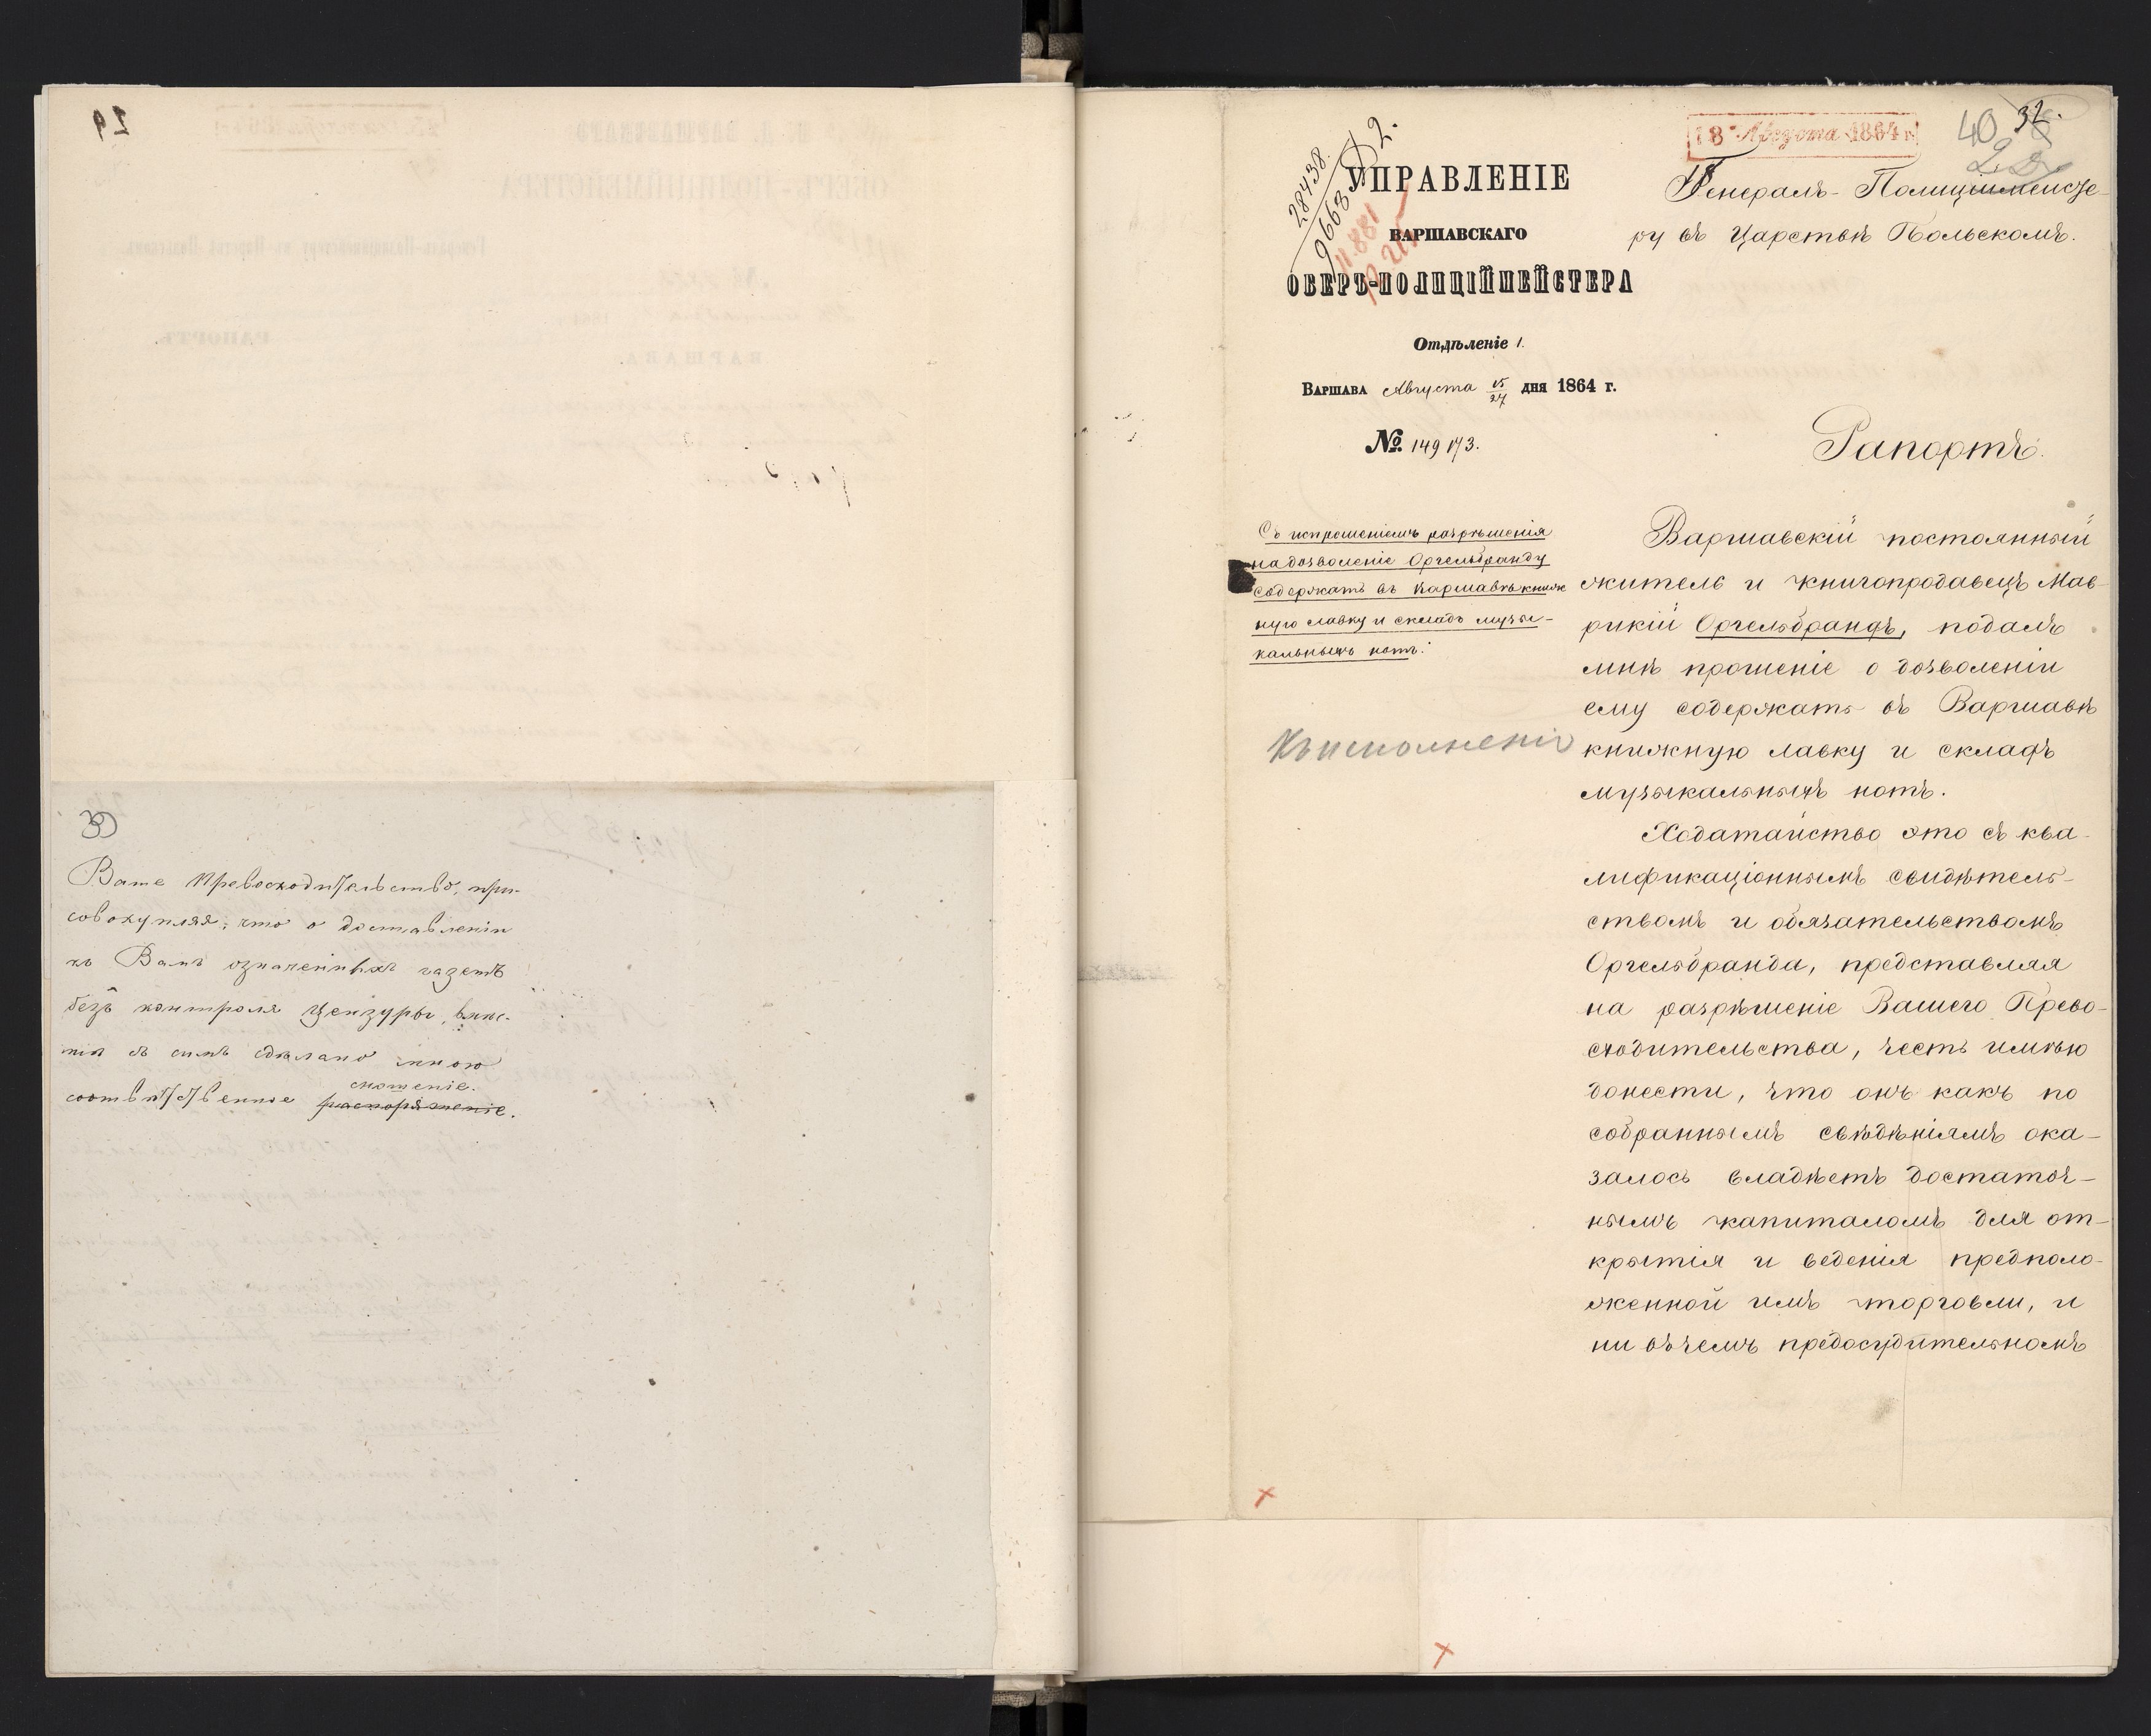 29
30
Ваше Превосходительство, при-
совокупляя, что о доставленіи
къ Вамъ означенныхъ газетъ
безъ контроля цензуры, вмѣс-
тѣ съ симъ сдѣлано мною
сношеніе.
соотвѣтственное распоряженіе.
28438.
9668
11.881
18 Августа 1864 г.
40
32.
УПРАВЛЕНІЕ
ВАРШАВСКАГО
ОБЕРЪ-ПОЛИЦІЙМЕЙСТЕРА
Отдѣленіе 1.
ВАРШАВА Августа 15/27 дня 1864 г.
№ 149173.
Генералъ-Полиціймейсте-
ру въ Царствѣ Польскомъ.
Рапортъ.
Съ испрошеніемъ разрѣшенія
на дозволеніе Оргельбранду
содержать въ Варшавѣ книж
ную лавку и складъ музы-
кальныхъ нотъ.
Къ исполненію
Варшавскій постоянный
житель и книгопродавецъ Мав-
рикій Оргельбрандъ, подалъ
мнѣ прошеніе о дозволеніи
ему содержать въ Варшавѣ
книжную лавку и складъ
музыкальныхъ нотъ.
Ходатайство это съ ква-
лификаціоннымъ свидѣтель-
ствомъ и обязательствомъ
Оргельбранда, представляя
на разрѣшеніе Вашего Прево-
сходительства, честь имѣю
донести, что онъ какъ по
собраннымъ свѣдѣніямъ ока-
залось владѣетъ достаточ-
нымъ капиталомъ для от-
крытія и веденія предполо-
женной имъ торговли, и
ни въ чемъ предосудительномъ